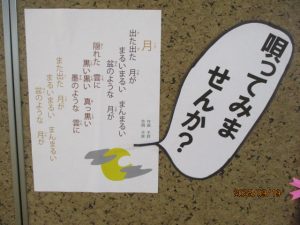 月
出た出た 月が
まるいまるい まんまるい
盆のような 月が
隠れた 雲に
黒い黒い 真っ黒い
墨のような 雲に
また出た 月が
まるいまるい まんまるい
盆のような 月が
唄ってみま
せんか？